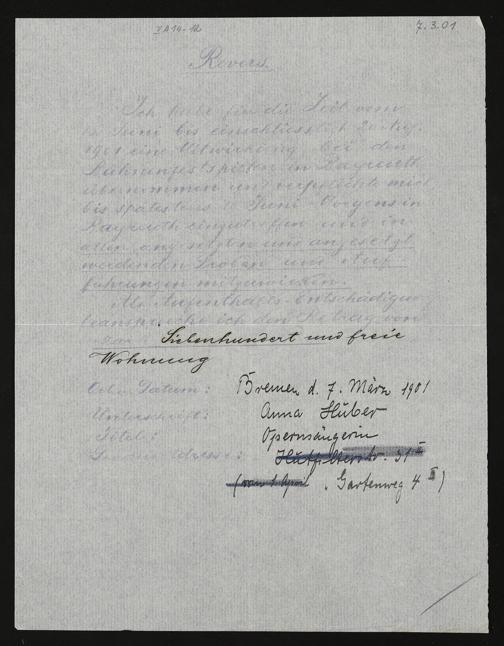 VA14-12
7.3.01
Revers.
Ich habe für die Zeit vom
Juni bis einschliesslich 20. Aug.
1901 eine Mitwirkung bei den
Bühnenfestspielen in Bayreuth
übernommen und verpflichte mich
bis spätestens Juni Morgens in
Bayreuth einzutreffen und in
allen angesetzten und angesetzt
werdenden Proben und Auf-
führungen mitzuwirken.
Als Aufenthalts-Entschädigung
beanspruche ich den Betrag von
Siebenhundert und freie
Wohnung
Ort u. Datum: Bremen d. 7. März 1901
Unterschrift: Anna Hüber
Titel: Opernsängerin
Adresse: 31 II
(vom 1 April, Gartenweg 4 II)